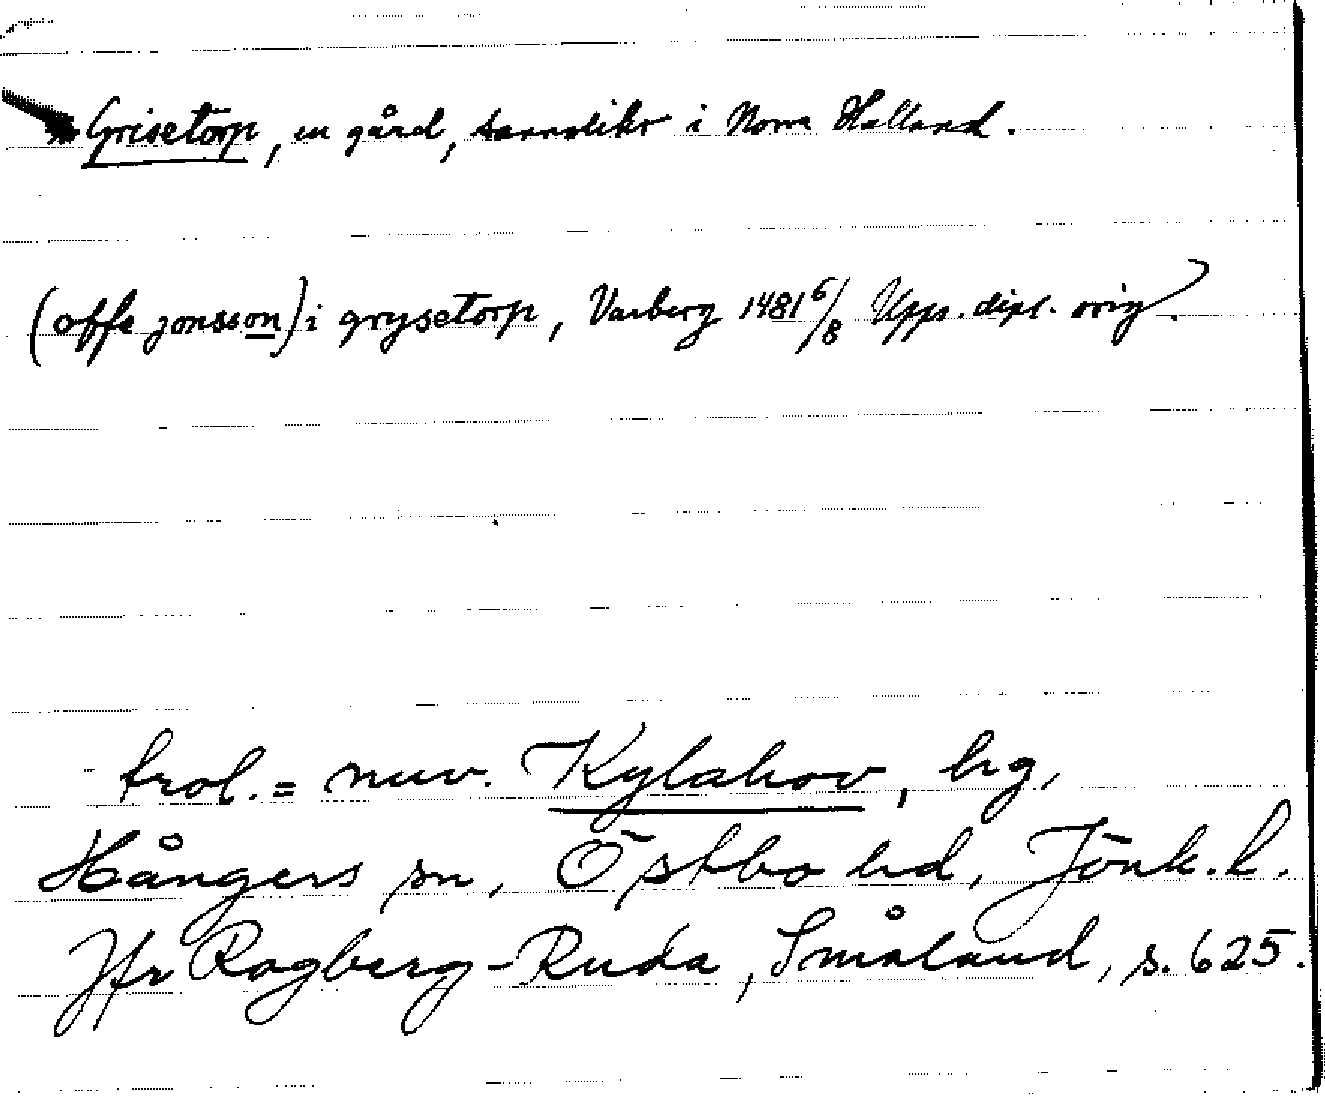 Grisetorp, en gård, sannolikt i Norra Halland.
(offe jonsson) i grysetorp, Varberg 1481 6/8 Upps. dipl. orig.
trol. = nuv. Kylahov, hg,
Hångers sn, Östbo hd, Jönk. l.
Jfr Rogberg-Ruda, Småland, s. 625.